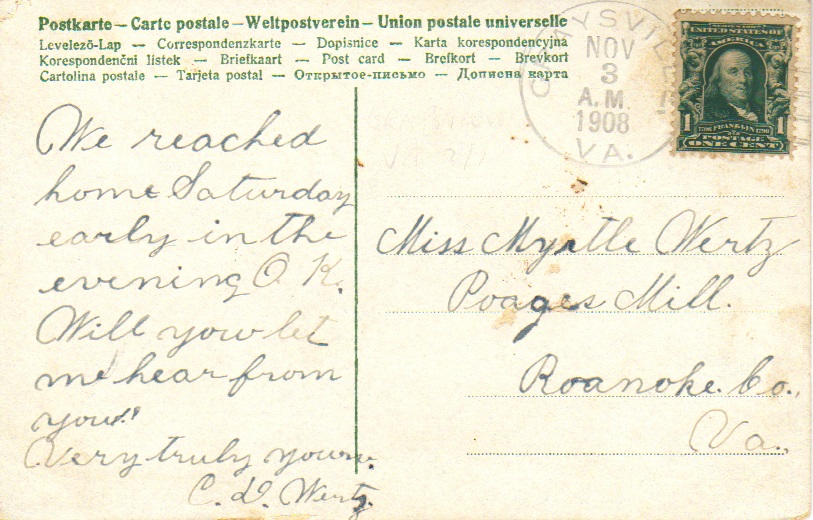 Postkarte – Carte postale – Weltpostverein – Union postale universelle
Levelező-Lap — Correspondenzkarte — Dopisnice — Karta korespondencyjna
Korespondenční lístek — Briefkaart — Post card — Brefkort — Brevkort
Cartolina postale — Tarjeta postal — Открытое-письмо — Дописна карта
We reached
home Saturday
early in the
evening O.K.
Will you let
me hear from
you?
Very truly yours.
C. D. Wertz.
NOV
3
A.M.
1908
VA.
UNITED STATES OF
AMERICA
1 1
FRANKLIN
POSTAGE
ONE CENT
Miss Myrtle Wertz
Poages Mill.
Roanoke. Co.,
Va.,